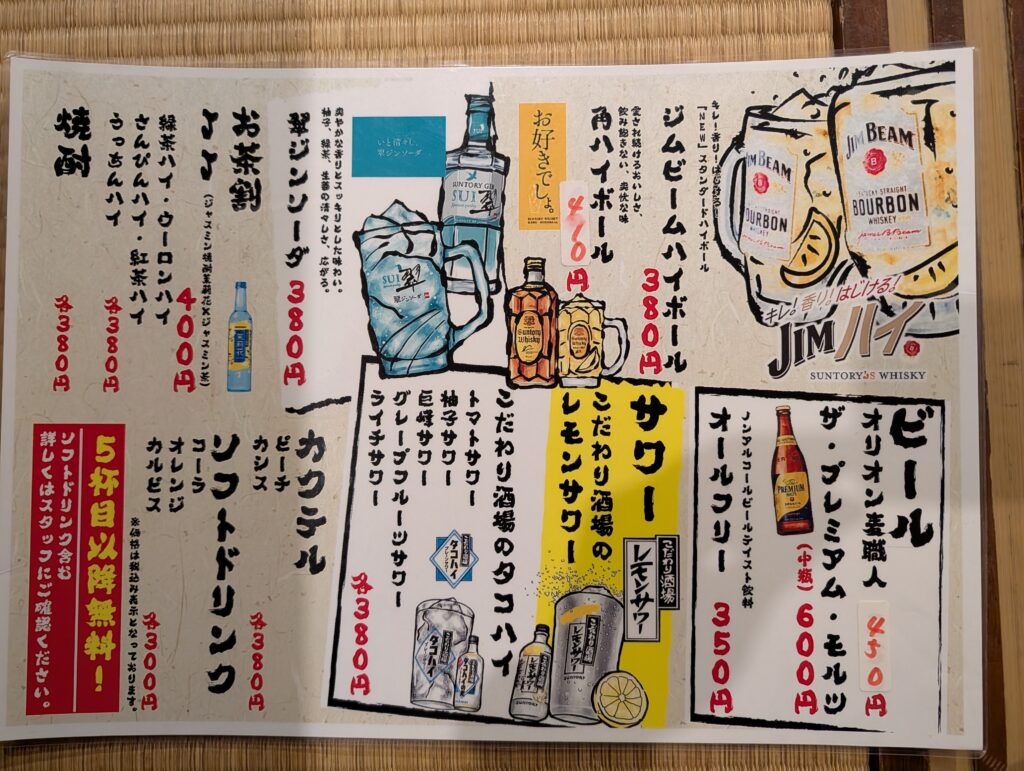 キレ！香り！はじける！
「NEW」スタンダードハイボール
ジムビームハイボール
380円
愛され続けるおいしさ、
飲み飽きない、爽快な味
角ハイボール
410円
お好きでしょ。
JIM BEAM
BOURBON
WHISKEY
JIM BEAM
KENTUCKY STRAIGHT
BOURBON
WHISKEY
James B. Beam
キレ！香り！はじける！
JIMハイ
SUNTORY WHISKY
SUNTORY GIN
SUI
翠
いと清々し、
翠ジンソーダ
SUI
翠
翠ジンソーダ
Suntory
Whisky
爽やかな香りとスッキリとした味わい。
柚子、緑茶、生姜の清々しさ、広がる。
翠ジンソーダ
380円
お茶割
よよ(ジャスミン焼酎茉莉花×ジャスミン茶)
400円
茉莉花
緑茶ハイ・ウーロンハイ
さんぴんハイ・紅茶ハイ
各380円
うっちんハイ
焼酎
各380円
ビール
オリオン麦職人
450円
ザ・プレミアム・モルツ
(中瓶)600円
PREMIUM
ノンアルコールビールテイスト飲料
オールフリー
350円
サワー
こだわり酒場の
レモンサワー
こだわり酒場
レモンサワー
こだわり酒場の
レモンサワー
SUNTORY
こだわり酒場のタコハイ
トマトサワー
柚子サワー
巨峰サワー
グレープフルーツサワー
ライチサワー
各380円
こだわり酒場
タコハイ
タコハイ
カクテル
ピーチ
カシス
各380円
ソフトドリンク
コーラ
オレンジ
カルピス
各300円
※価格は税込み表示となっております。
5杯目以降無料！
ソフトドリンク含む
詳しくはスタッフにご確認ください。